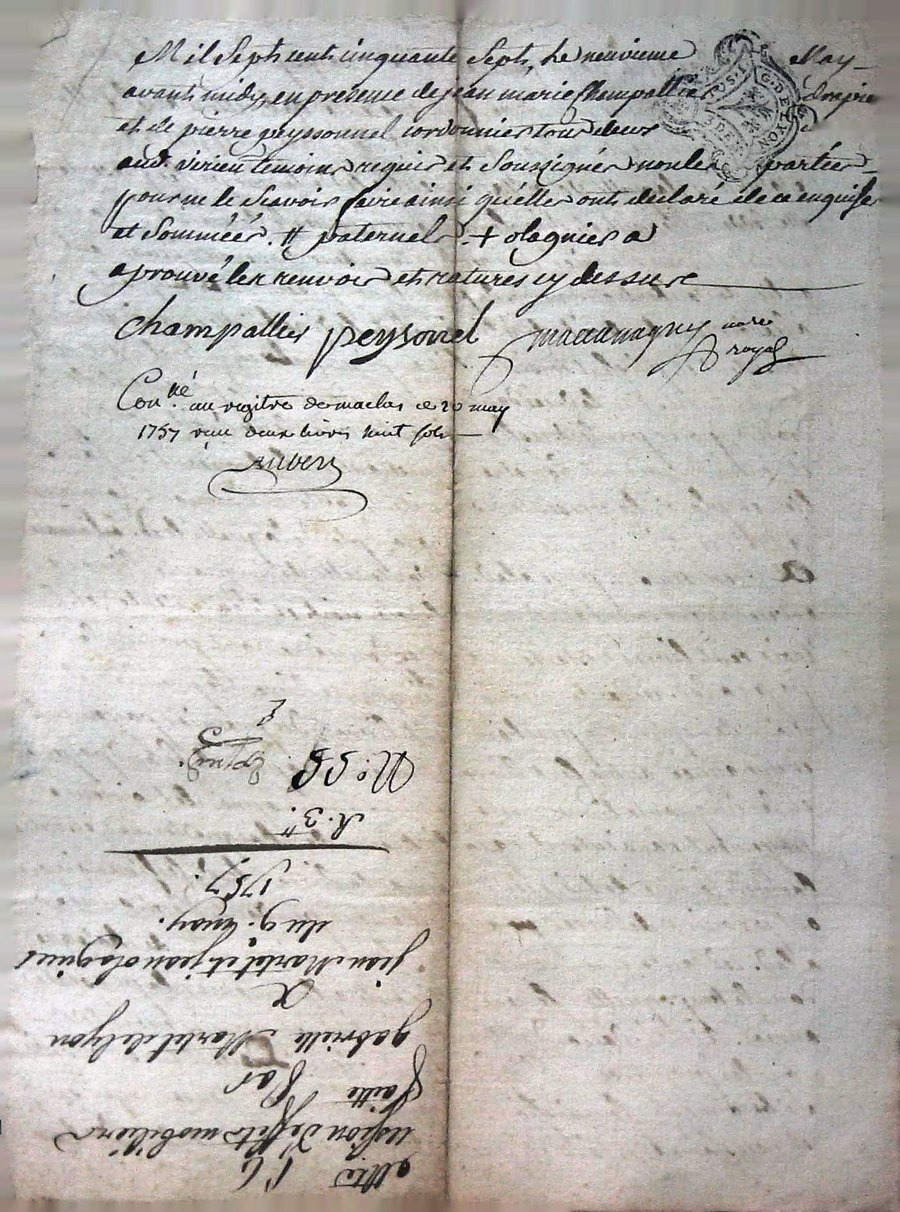 Mil Sept cent cinquante Sept, Le neuvieme May
avant midy, en presence de jean marie Champallier drapier
et de pierre peyssonnel cordonnier tous deux
aud. virieu temoins requis et Soussignés non les parties
pour ne le Scavoir faire ainsi qu'elles ont declaré de ce enquises
et Sommées. # paternels + olagnier a
aprouvé les renvois et ratures cy dessus
G. DE LYON
champallier peyssonel nore
royal
Con.llé au registre de maclas ce 20 may
1757 reçu deux livres huit sols
Aubert
N.° 55
R. 3.#
1757.
du 9. may.
jean Martel et jean olagnier
a
gabrielle Martel de lyon
faitte Par
cession d'effets mobiliers